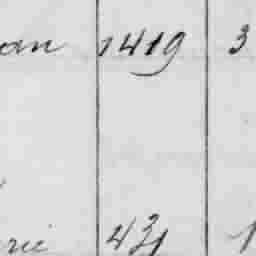 an 1419 3
rie 431 1